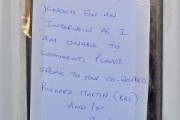 KNOCK FOR AN
INTERVIEW AS I
AM UNABLE TO
COMMENT. PLEASE
SPEAK TO YOUR CO-WORKER
RICHARD MARTIN (BBC)
AND IN